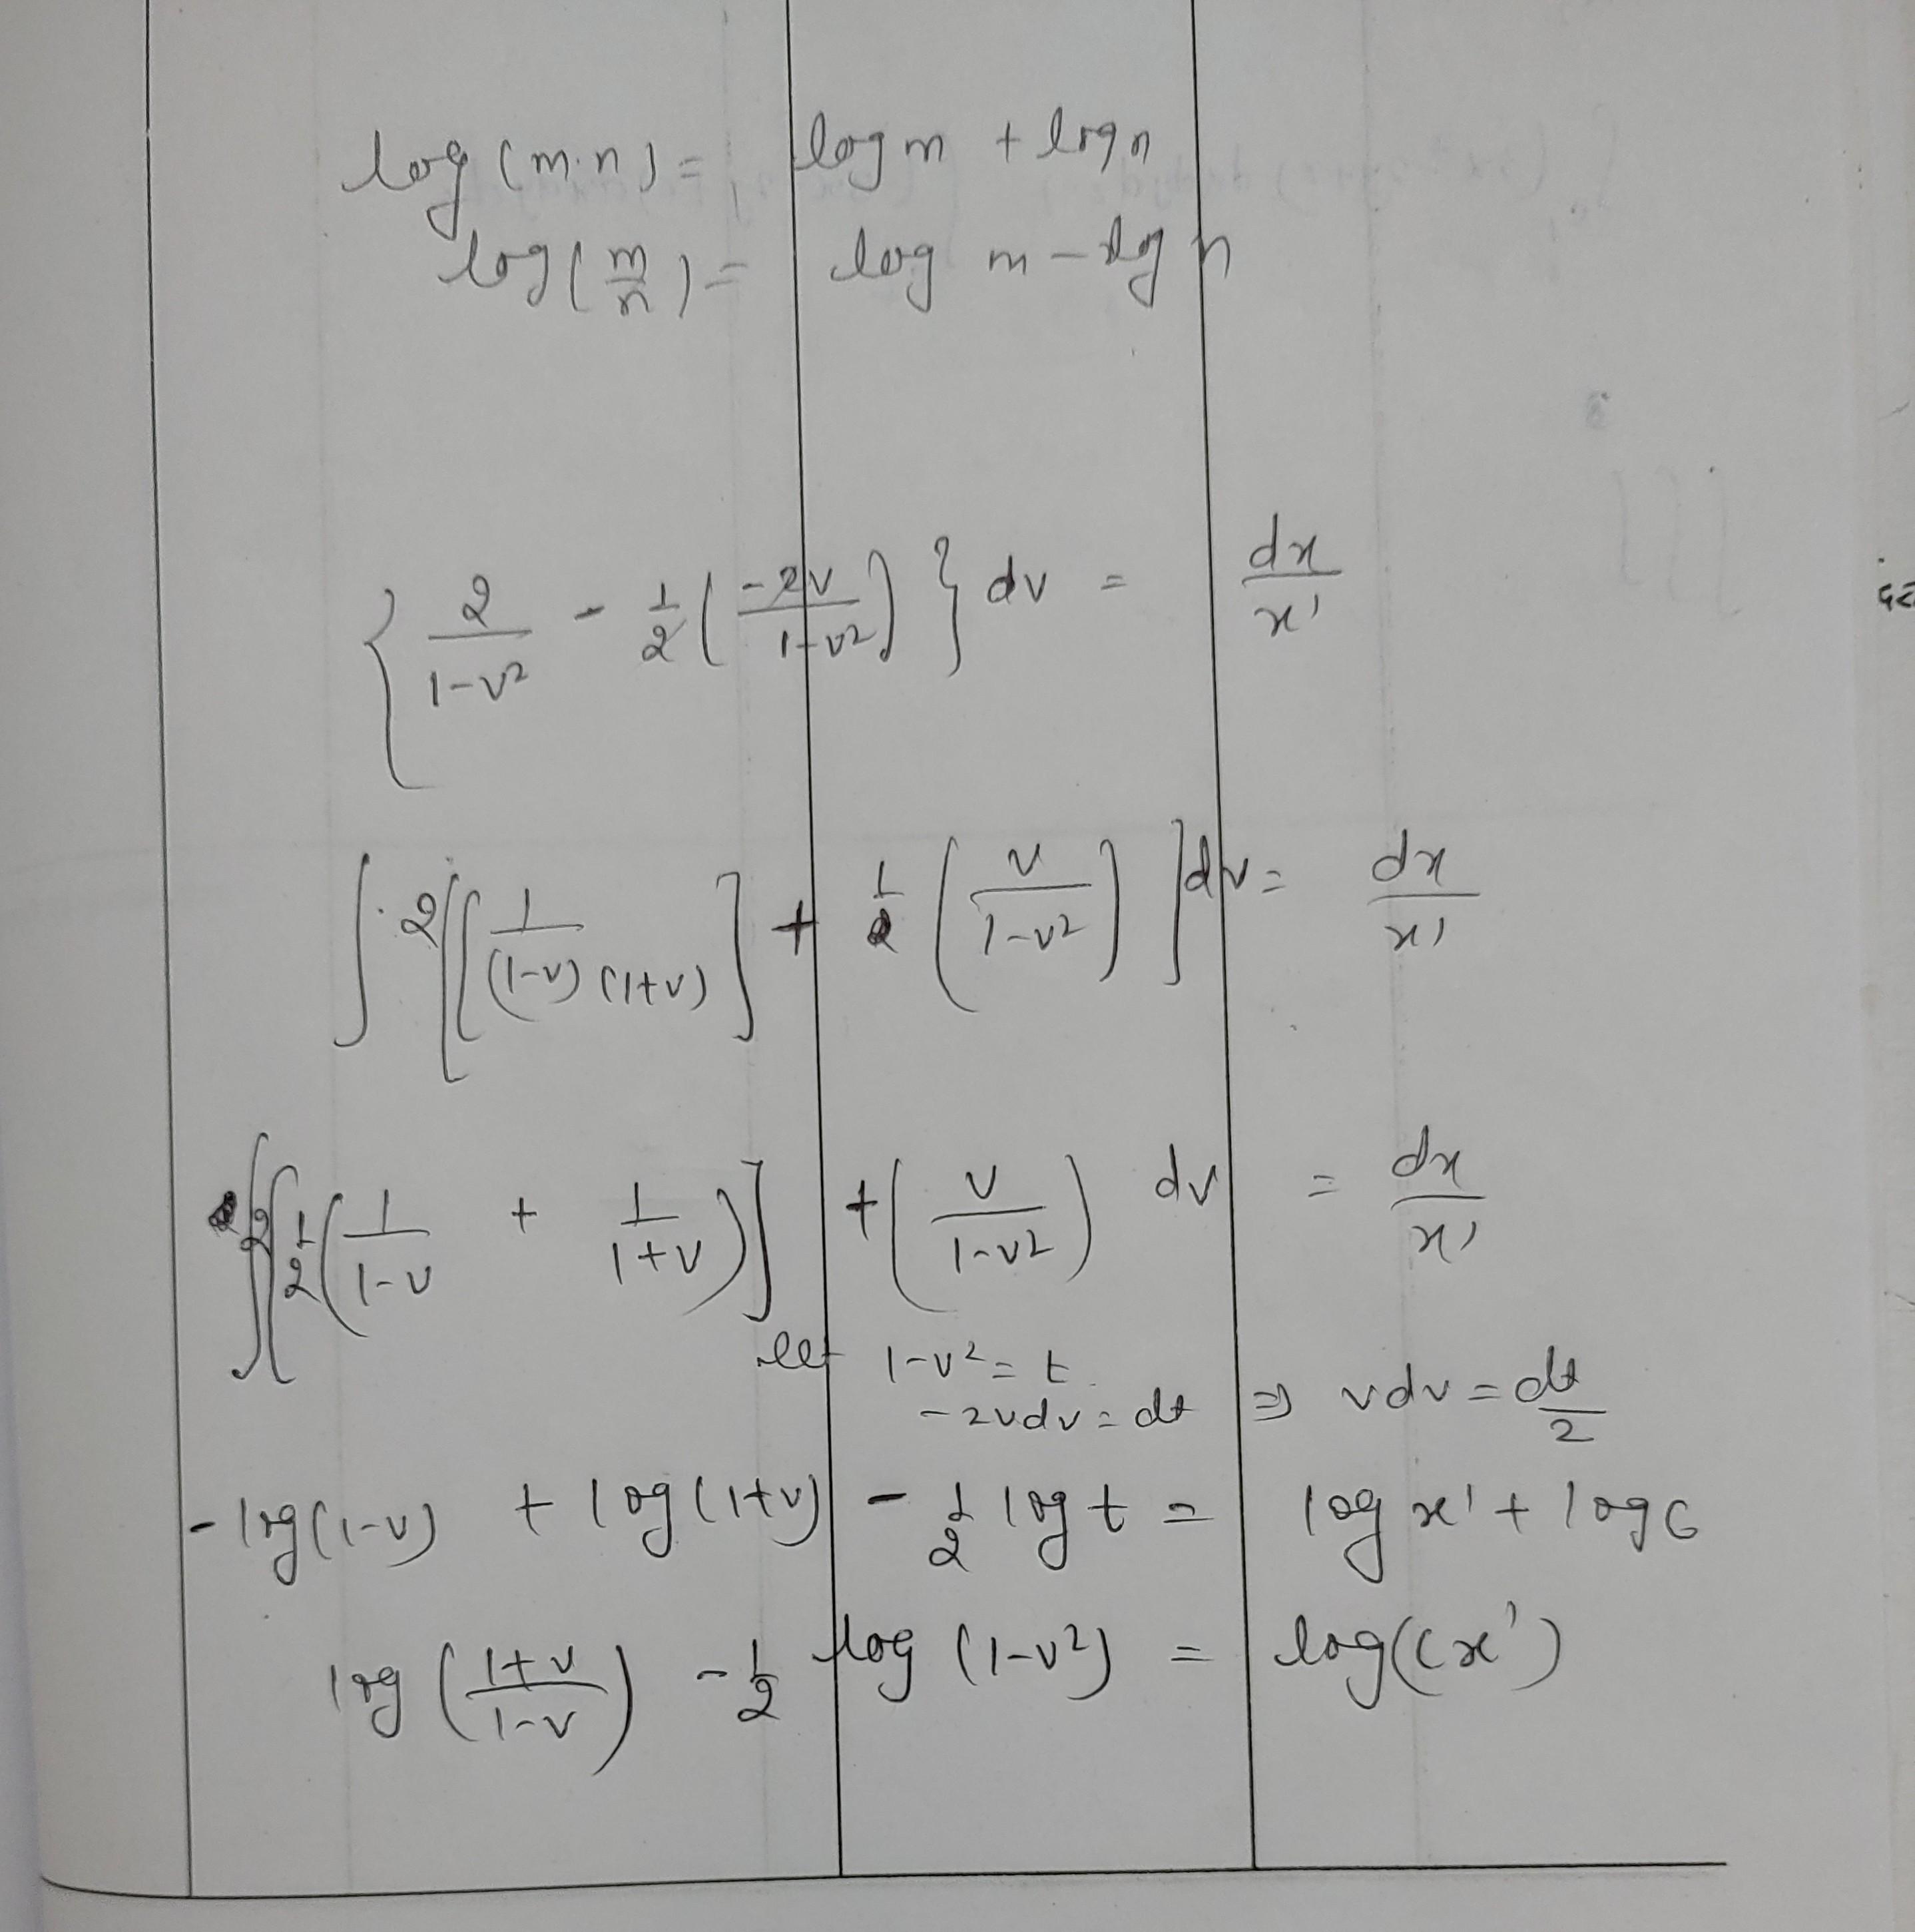 log (m.n) = log m + log n
log (m/n) = log m - log n
{ 2/(1-v²) - 1/2 ( -2v/(1-v²) ) } dv = dx'/x'
∫ 2 [ [ 1/((1-v)(1+v)) ] + 1/2 ( v/(1-v²) ) ] dv = dx/x'
∫ 2 [ 1/2 ( 1/(1-v) + 1/(1+v) ) ] + ( v/(1-v²) ) dv = dx/x'
let 1-v² = t
-2vdv = dt ⇒ vdv = dt/2
- log(1-v) + log(1+v) - 1/2 log t = log x' + log c
log ( (1+v)/(1-v) ) - 1/2 log (1-v²) = log(cx')